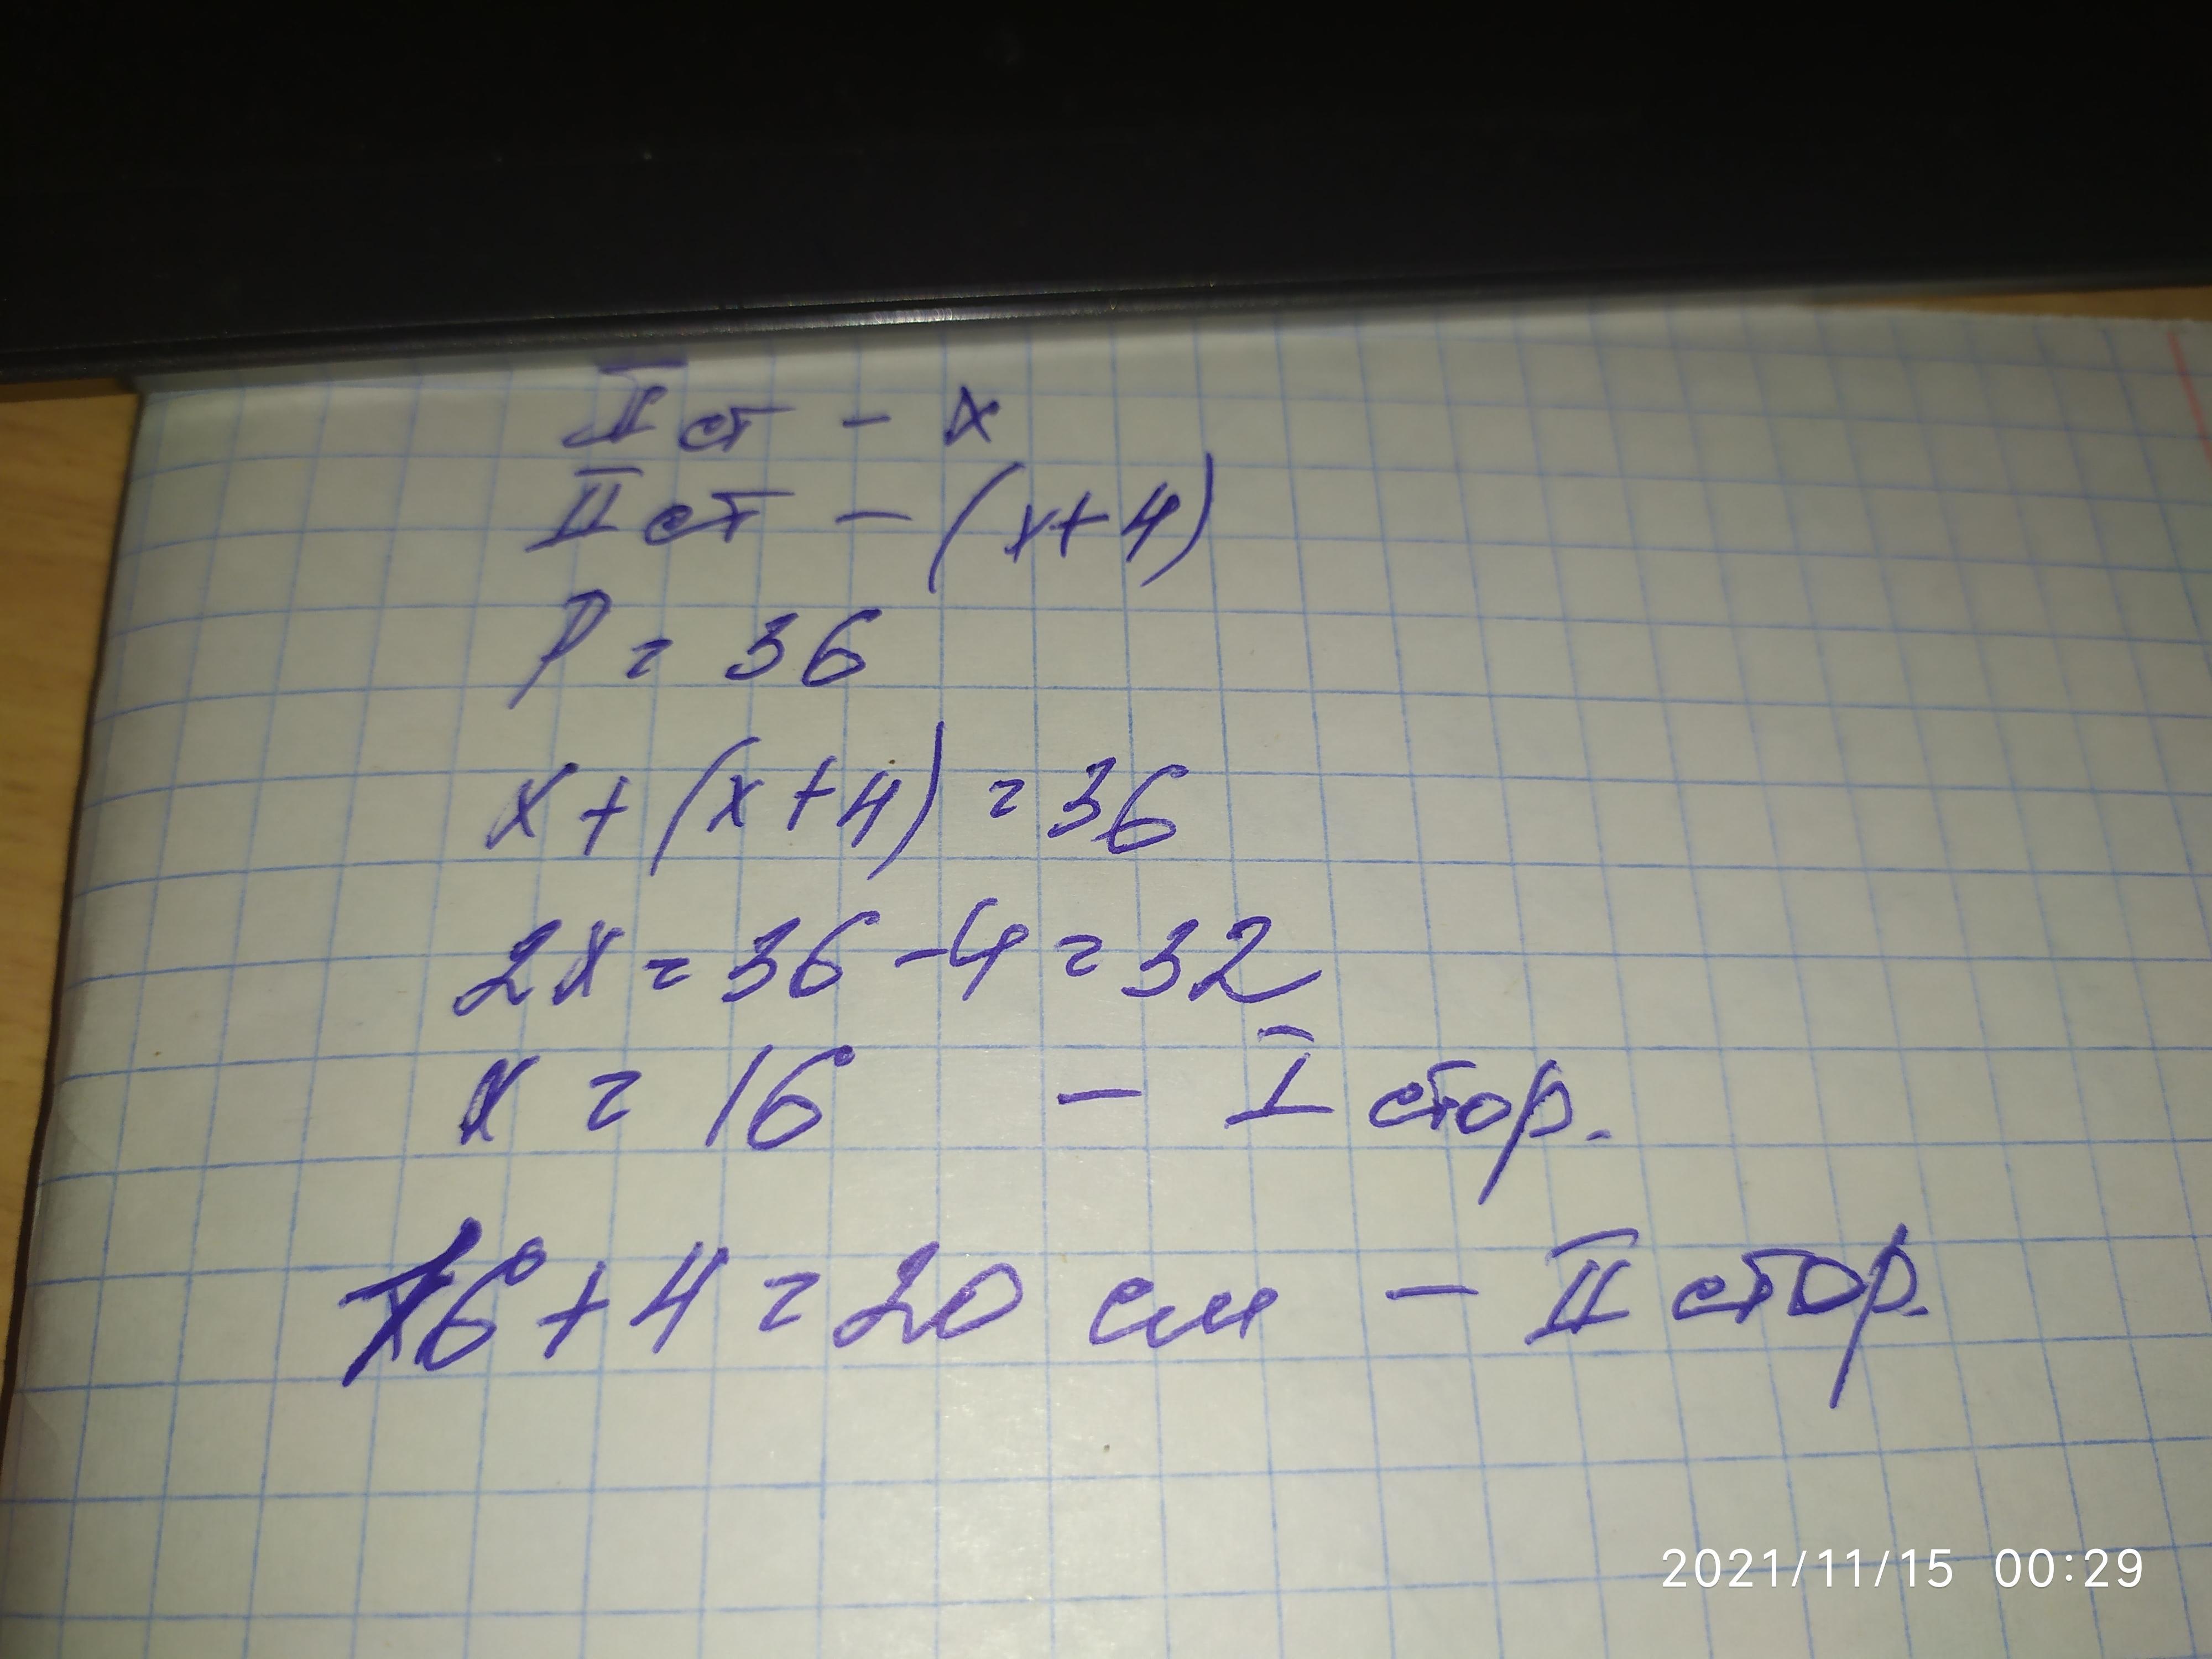 I ст - x
II ст - (x+4)
P = 36
x + (x+4) = 36
2x = 36 - 4 = 32
x = 16 - I стор.
16 + 4 = 20 см - II стор.
2021/11/15 00:29